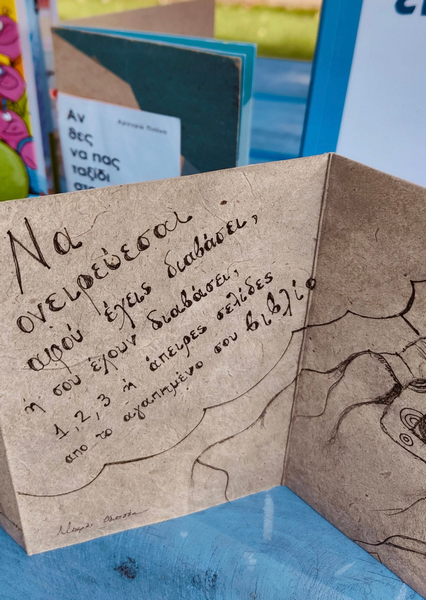 Αν
θες
να πας
ταξίδι
Να
ονειρεύεσαι
αφού έχεις διαβάσει,
ή σου έχουν διαβάσει,
1, 2, 3 ή άπειρες σελίδες
απο το αγαπημένο σου βιβλίο